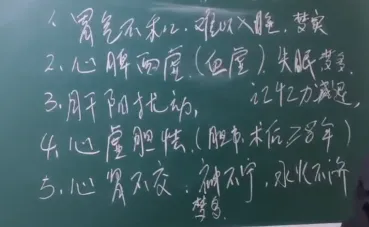 1、胃气不和、难以入睡、梦多
2、心脾两虚、(血虚)、失眠梦多、
3、肝阳扰动、 记忆力减退、
4、心虚胆怯、(胆市术后≥8年)
5、心肾不交、神不宁,水火不济
梦多、